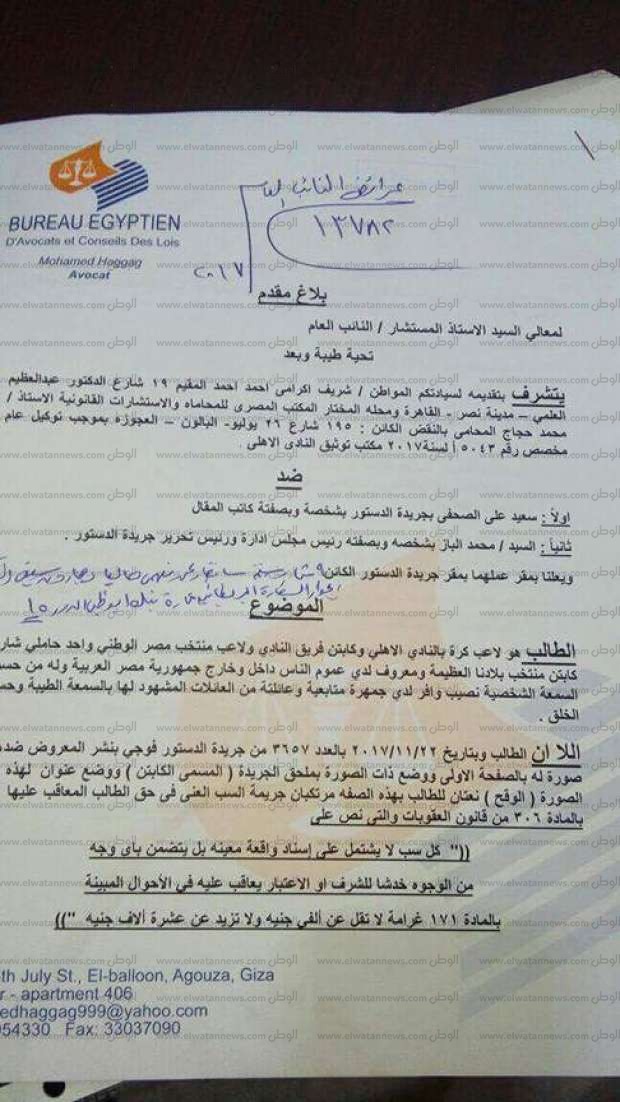 BUREAU EGYPTIEN
D'Avocats et Conseils Des Lois
Mohamed Haggag
Avocat
عرائض النائب العام
١٣٧٨٢
٢٠١٧
بلاغ مقدم
لمعالي السيد الاستاذ المستشار / النائب العام
تحية طيبة وبعد
يتشرف بتقديمه لسيادتكم المواطن / شريف اكرامى احمد احمد المقيم ١٩ شارع الدكتور عبدالعظيم
العلمي – مدينة نصر - القاهرة ومحله المختار المكتب المصرى للمحاماه والاستشارات القانونية الاستاذ /
محمد حجاج المحامى بالنقض الكائن : ١٩٥ شارع ٢٦ يوليو- البالون – العجوزه بموجب توكيل عام
مخصص رقم ٥٠٤٣ أ لسنة ٢٠١٧ مكتب توثيق النادى الاهلى .
ضد
اولاً : سعيد على الصحفى بجريدة الدستور بشخصة وبصفتة كاتب المقال
ثانياً : السيد / محمد الباز بشخصه وبصفته رئيس مجلس ادارة ورئيس تحرير جريدة الدستور .
ويعلنا بمقر عملهما بمقر جريدة الدستور الكائن
الموضوع
الطالب هو لاعب كرة بالنادي الاهلي وكابتن فريق النادي ولاعب منتخب مصر الوطني واحد حاملي شار
كابتن منتخب بلادنا العظيمة ومعروف لدي عموم الناس داخل وخارج جمهورية مصر العربية وله من حس
السمعة الشخصية نصيب وافر لدي جمهرة متابعية وعائلتة من العائلات المشهود لها بالسمعة الطيبة وحس
الخلق .
اللا ان الطالب وبتاريخ ٢٠١٧/١١/٢٢ بالعدد ٣٦٥٧ من جريدة الدستور فوجي بنشر المعروض ضده
صورة له بالصفحة الاولى ووضع ذات الصورة بملحق الجريدة ( المسمى الكابتن ) ووضع عنوان لهذه
الصورة ( الوقح ) نعتان للطالب بهذه الصفه مرتكبان جريمة السب العنى فى حق الطالب المعاقب عليها
بالمادة ٣٠٦ من قانون العقوبات والتى نص على
((" كل سب لا يشتمل على إسناد واقعة معينه بل يتضمن بأى وجه
من الوجوه خدشا للشرف او الاعتبار يعاقب عليه في الأحوال المبينة
بالمادة ١٧١ غرامة لا تقل عن ألفي جنيه ولا تزيد عن عشرة ألاف جنيه "))
6th July St., El-balloon, Agouza, Giza
r - apartment 406
edhaggag999@yahoo.com
954330 Fax: 33037090
الوطن www.elwatannews.com